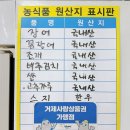 농식품 원산지 표시판
품명 원산지
광어 국내산
꽃광어 국내산
조개 국내산
배추김치 국내산
쌀 국내산
고추가루 국내산
스지 한우
거제사랑상품권
가맹점